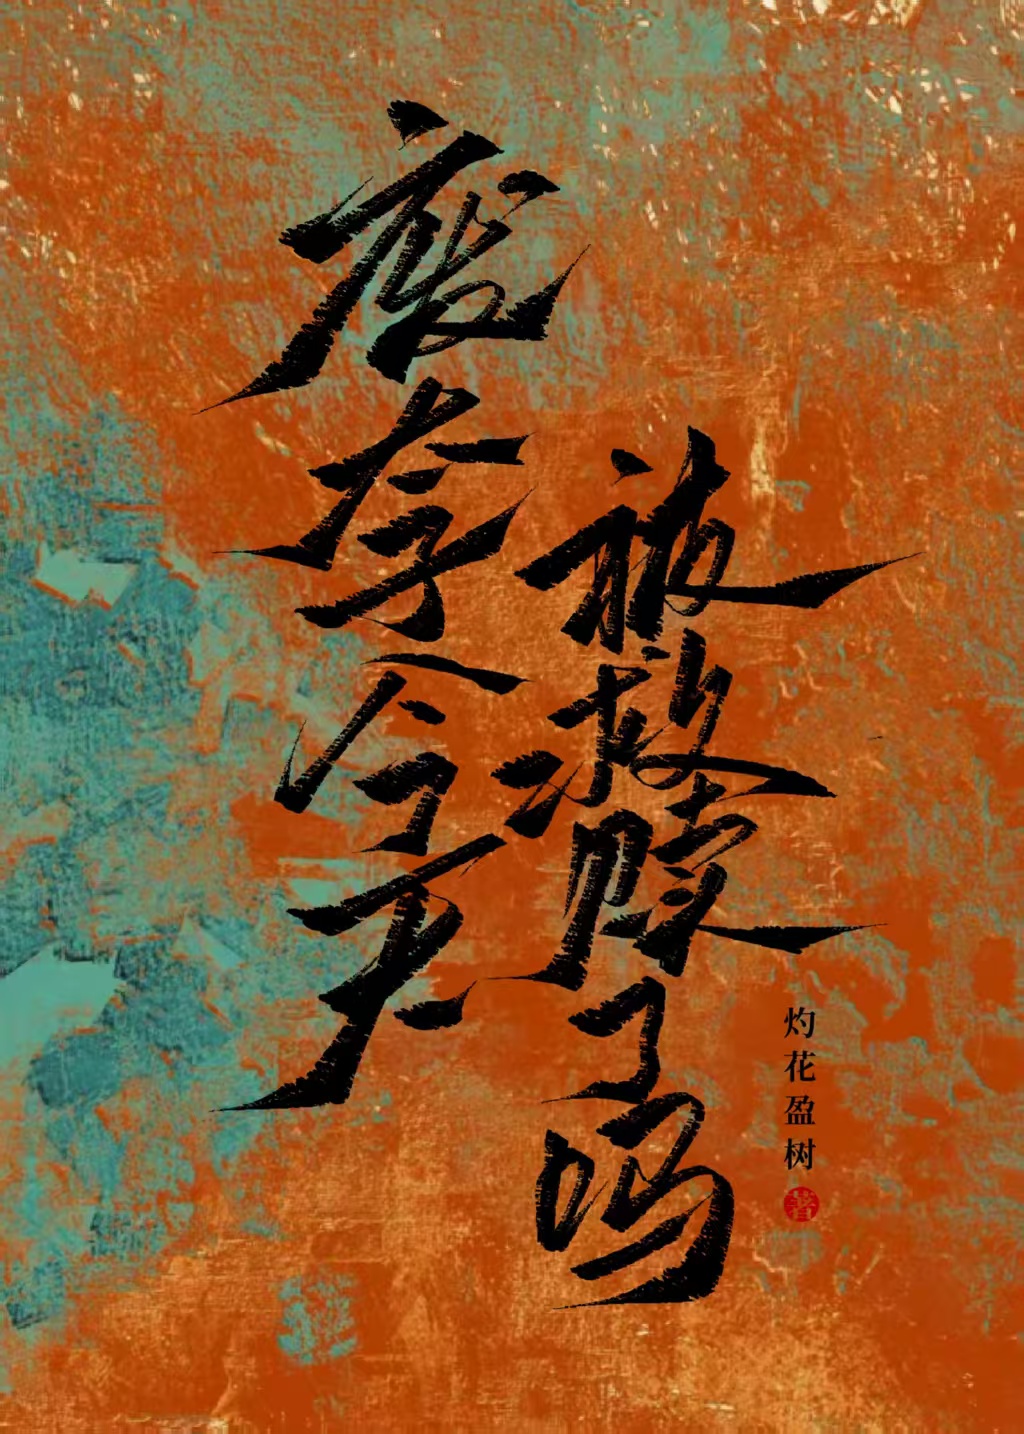 废太子今天
被救赎了吗
灼花盈树
著